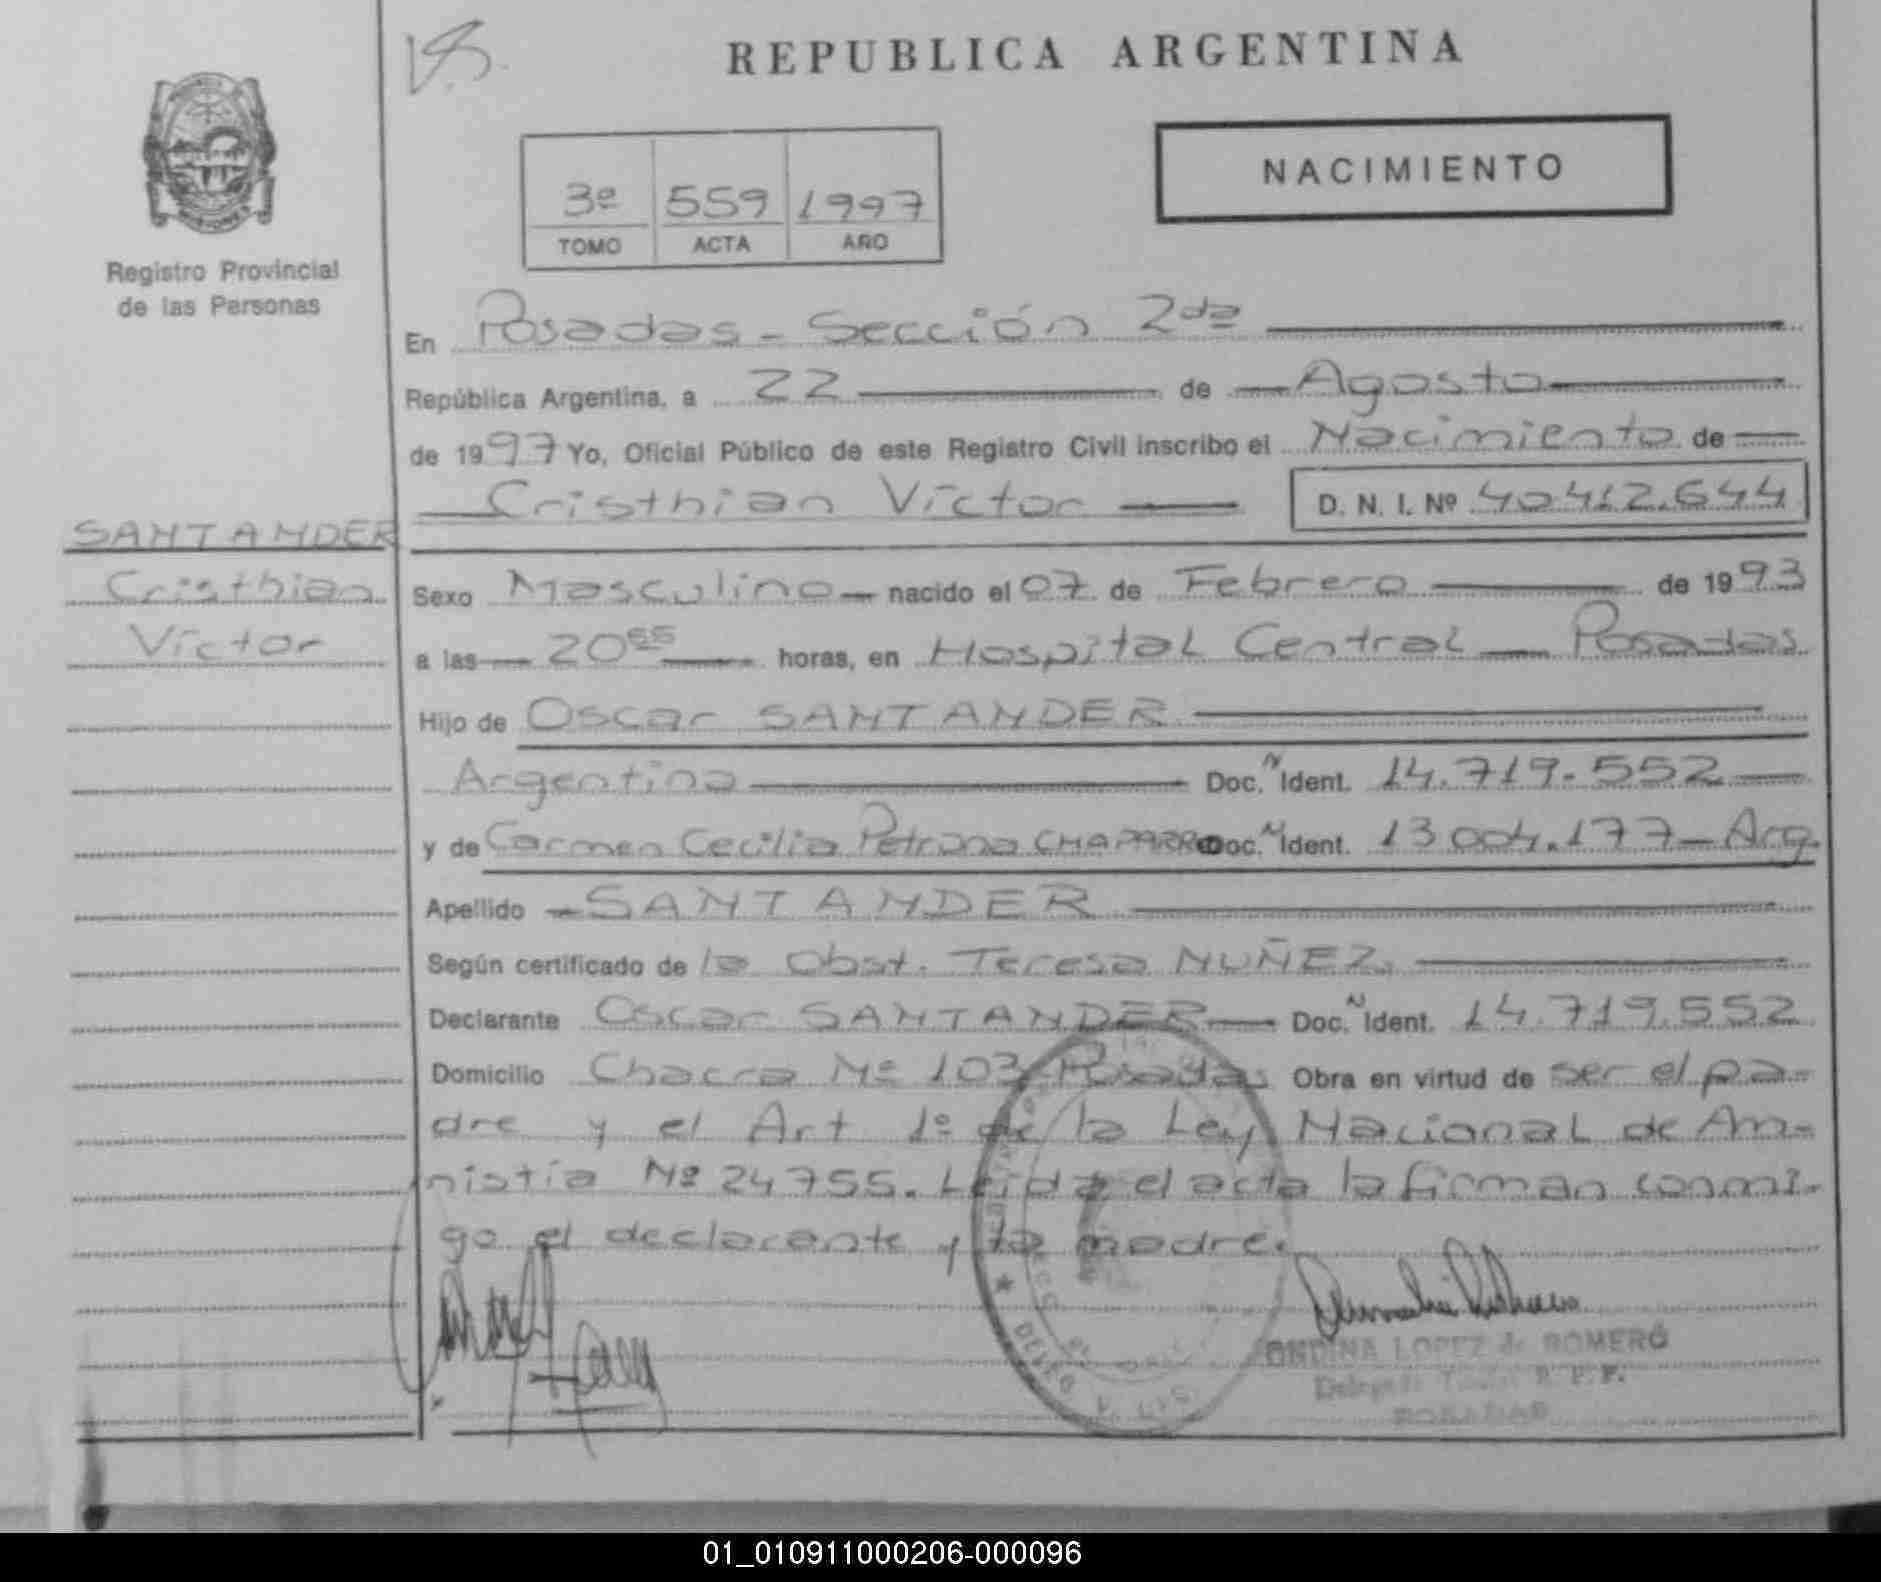 REPUBLICA ARGENTINA
NACIMIENTO
3º 559 1997
TOMO ACTA AÑO
Registro Provincial
de las Personas
En Posadas - Sección 2da
República Argentina, a 22 de Agosto
de 1997 Yo, Oficial Público de este Registro Civil inscribo el Nacimiento de
Cristhian Víctor D. N. I. Nº 40412.644
SANTANDER
Cristhian
Víctor
Sexo Masculino nacido el 07 de Febrero de 1993
a las 20 55 horas, en Hospital Central — Posadas
Hijo de Oscar SANTANDER
Argentina Doc. N Ident. 14.719.552
y de Carmen Cecilia Petrona CHAPARRO Doc. N Ident. 13 004.177 - Arg.
Apellido SANTANDER
Según certificado de la Obst. Teresa NUÑEZ
Declarante Oscar SANTANDER Doc. N Ident. 14.719.552
Domicilio Chacra Nº 103 - Posadas Obra en virtud de ser el pa-
dre y el Art 1º de la Ley Nacional de Am-
nistia Nº 24755. Leida el acta la firman conmi-
go el declarante y la madre.
ONDINA LOPEZ de ROMERO
POSADAS
01_010911000206-000096